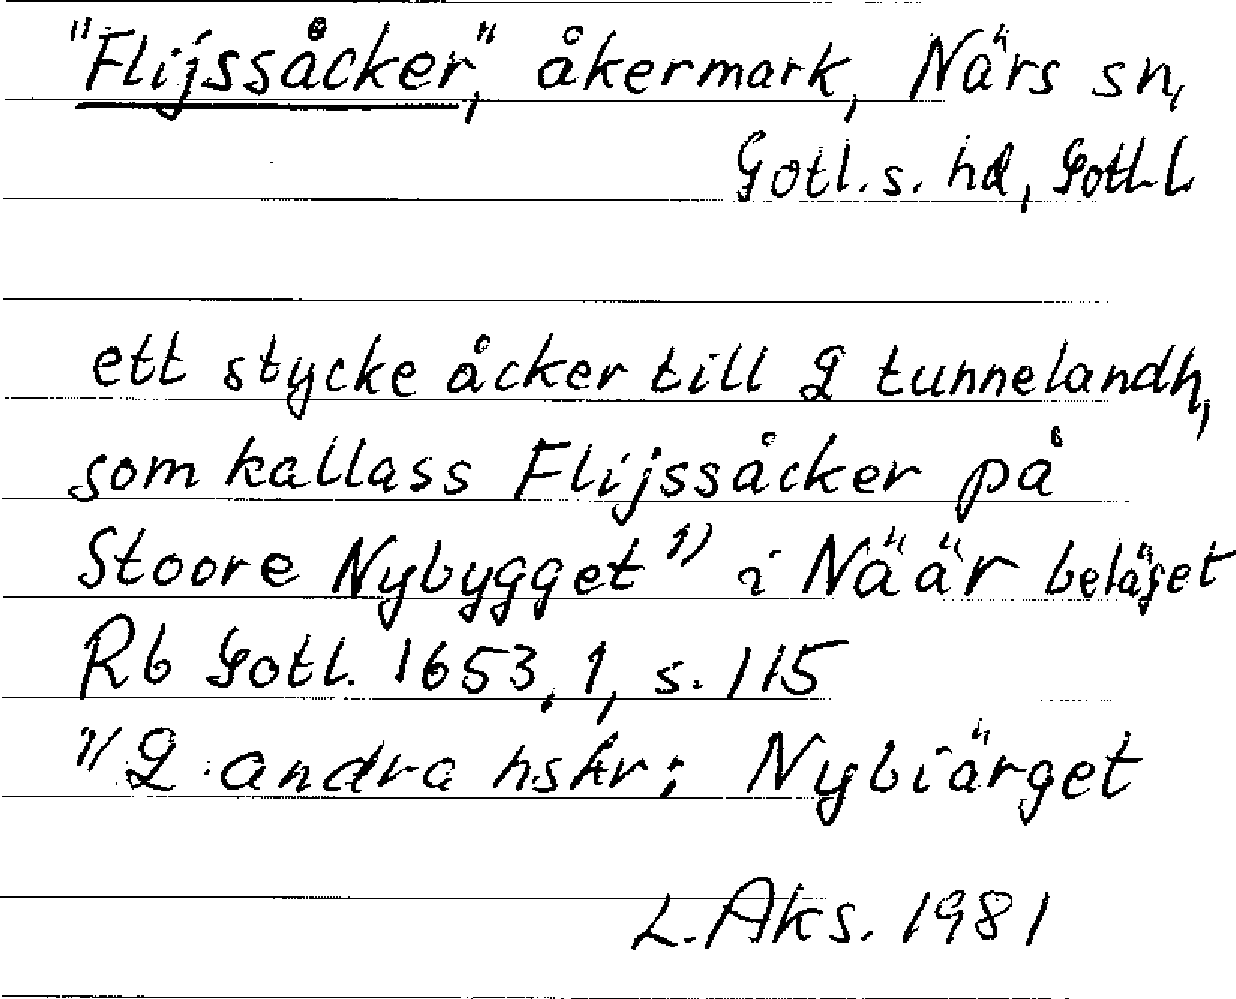 "Flijssåcker", åkermark, Närs sn,
Gotl. s. hd, Gotl. L
ett stycke åcker till 2 tunnelandh,
som kallass Flijssåcker på
Stoore Nybygget 1) i Näär beläget
Rb Gotl. 1653, 1, s. 115
1) 2 andra hskr; Nybiärget
L. Aks. 1981